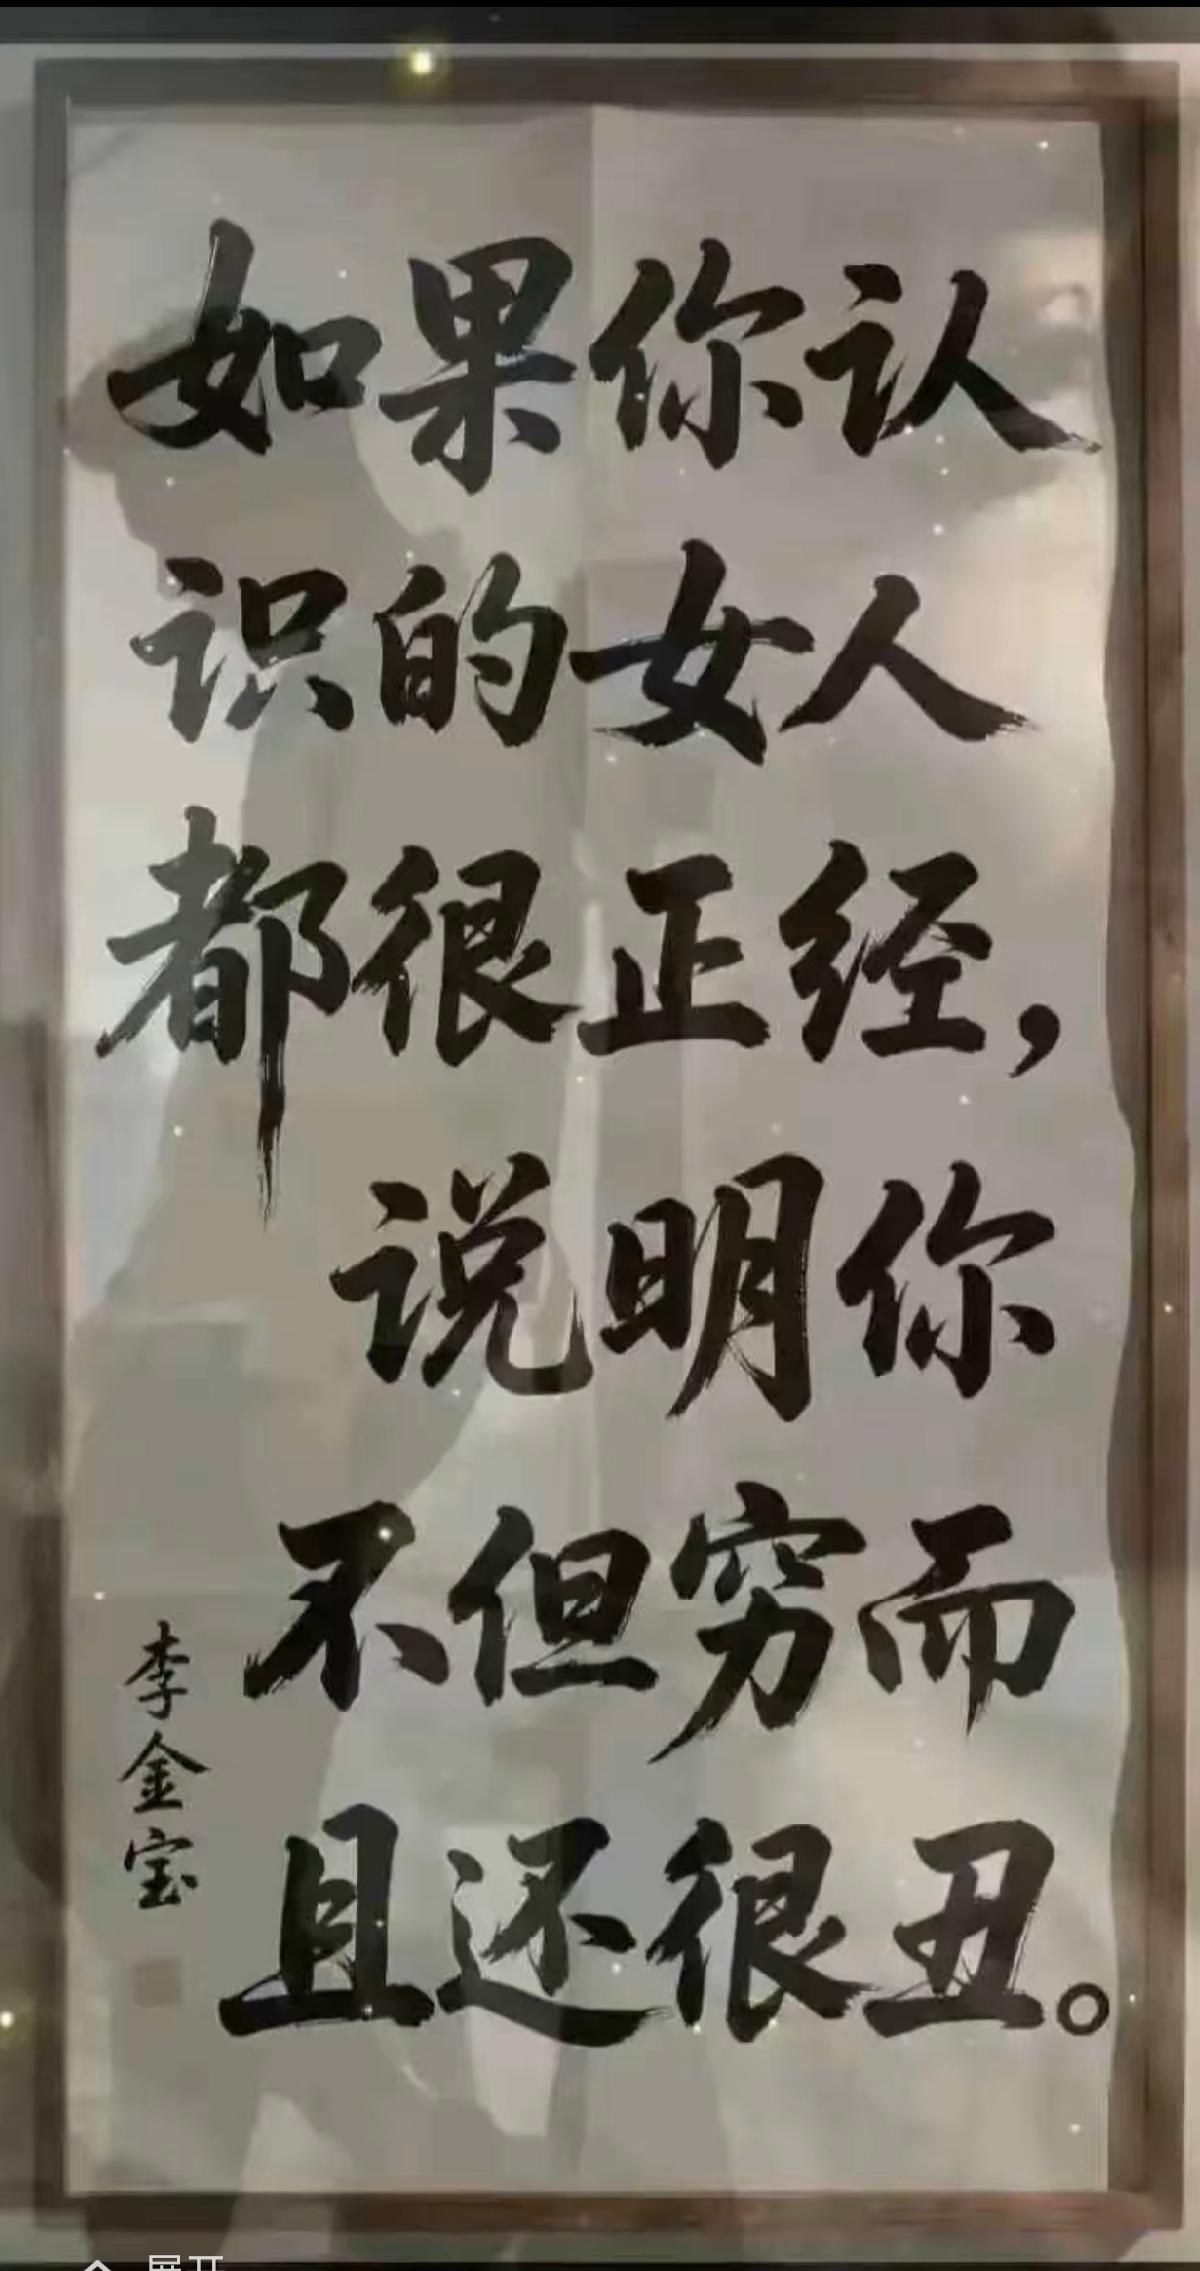 如果你认
识的女人
都很正经，
说明你
不但穷而
且还很丑。
李金宝
展开